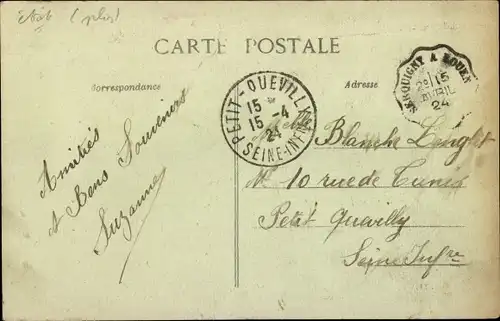 Etab (plis)
CARTE POSTALE
Correspondance
Adresse
PETIT-QUEVILLY
15
15 -4
24
SEINE-INFRE
SERQUIGNY A ROUEN
15
AVRIL
24
Amitiés
et Bons Souvenirs
Suzanne
Mlle Blanche Linglet
10 rue de Tunis
Petit Quevilly
Seine Infre